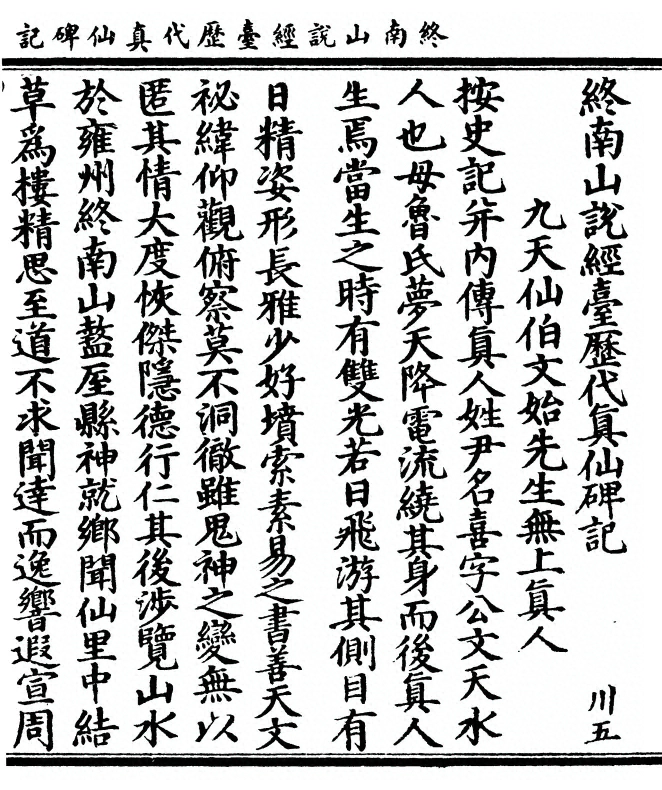 終南山說經臺歷代真仙碑記
終南山說經臺歷代眞仙碑記
川五
九天仙伯文始先生無上眞人
按史記并內傳眞人姓尹名喜字公文天水
人也母魯氏夢天降電流繞其身而後眞人
生焉當生之時有雙光若日飛游其側目有
日精姿形長雅少好墳索素易之書善天文
祕緯仰觀俯察莫不洞徹雖鬼神之變無以
匿其情大度恢傑隱德行仁其後涉覽山水
於雍州終南山盩厔縣神就鄉聞仙里中結
草爲樓精思至道不求聞達而逸響遐宣周